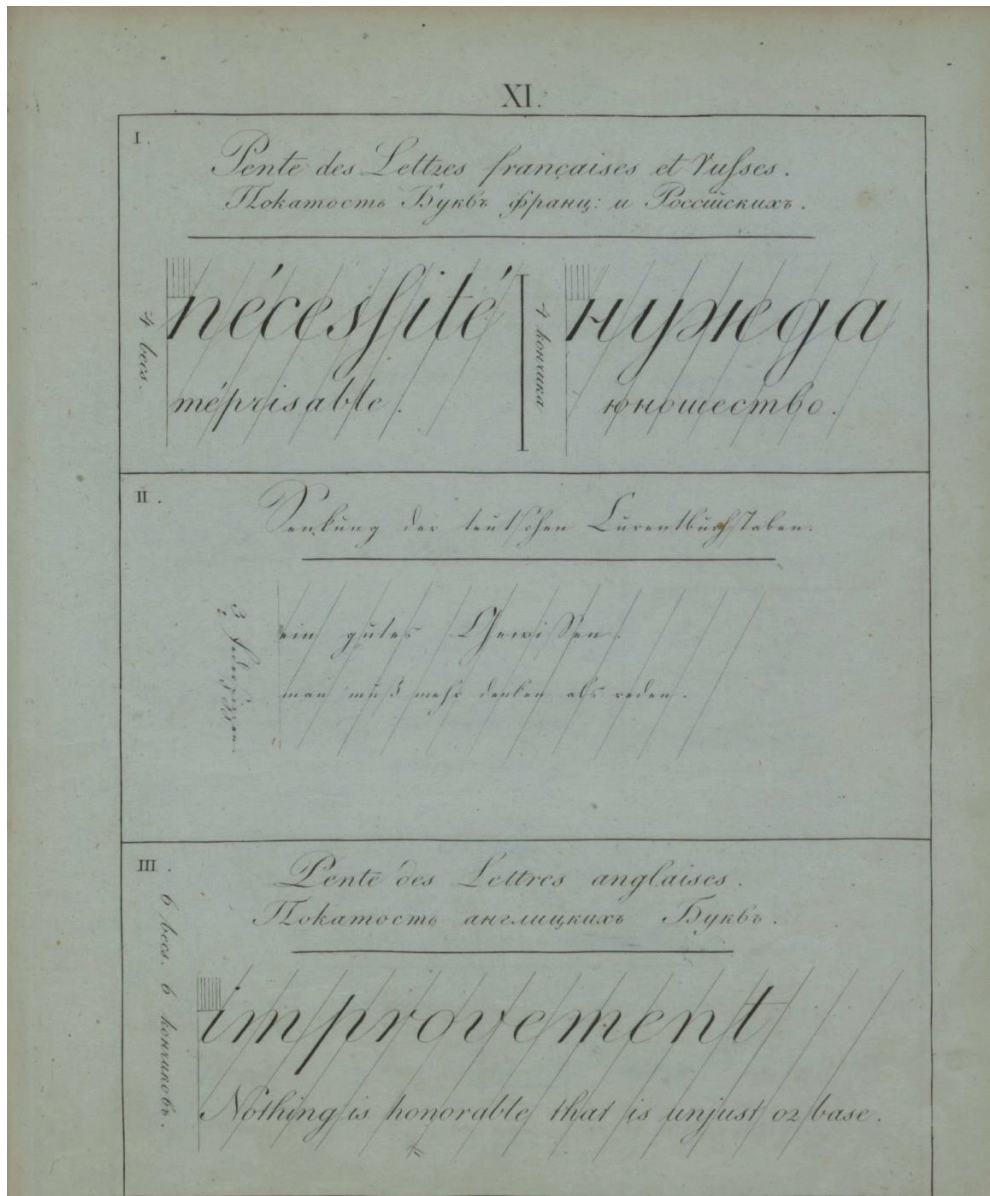 XI.
I.
Pente des Lettres françaises et rufses.
Покатость Буквъ франц: и Россiйскихъ.
4 becs.
nécesſité
méprisable.
4 кончика
нужда
юношество.
II.
Senkung der teutschen Curentbuchstaben.
3 Federspizzen.
ein gutes Gewissen.
man muß mehr denken als reden.
III.
Pente des Lettres anglaises.
Покатость англицкихъ Буквъ.
6 becs. 6 кончиковъ.
improvement
Nothing is honorable that is unjust or base.